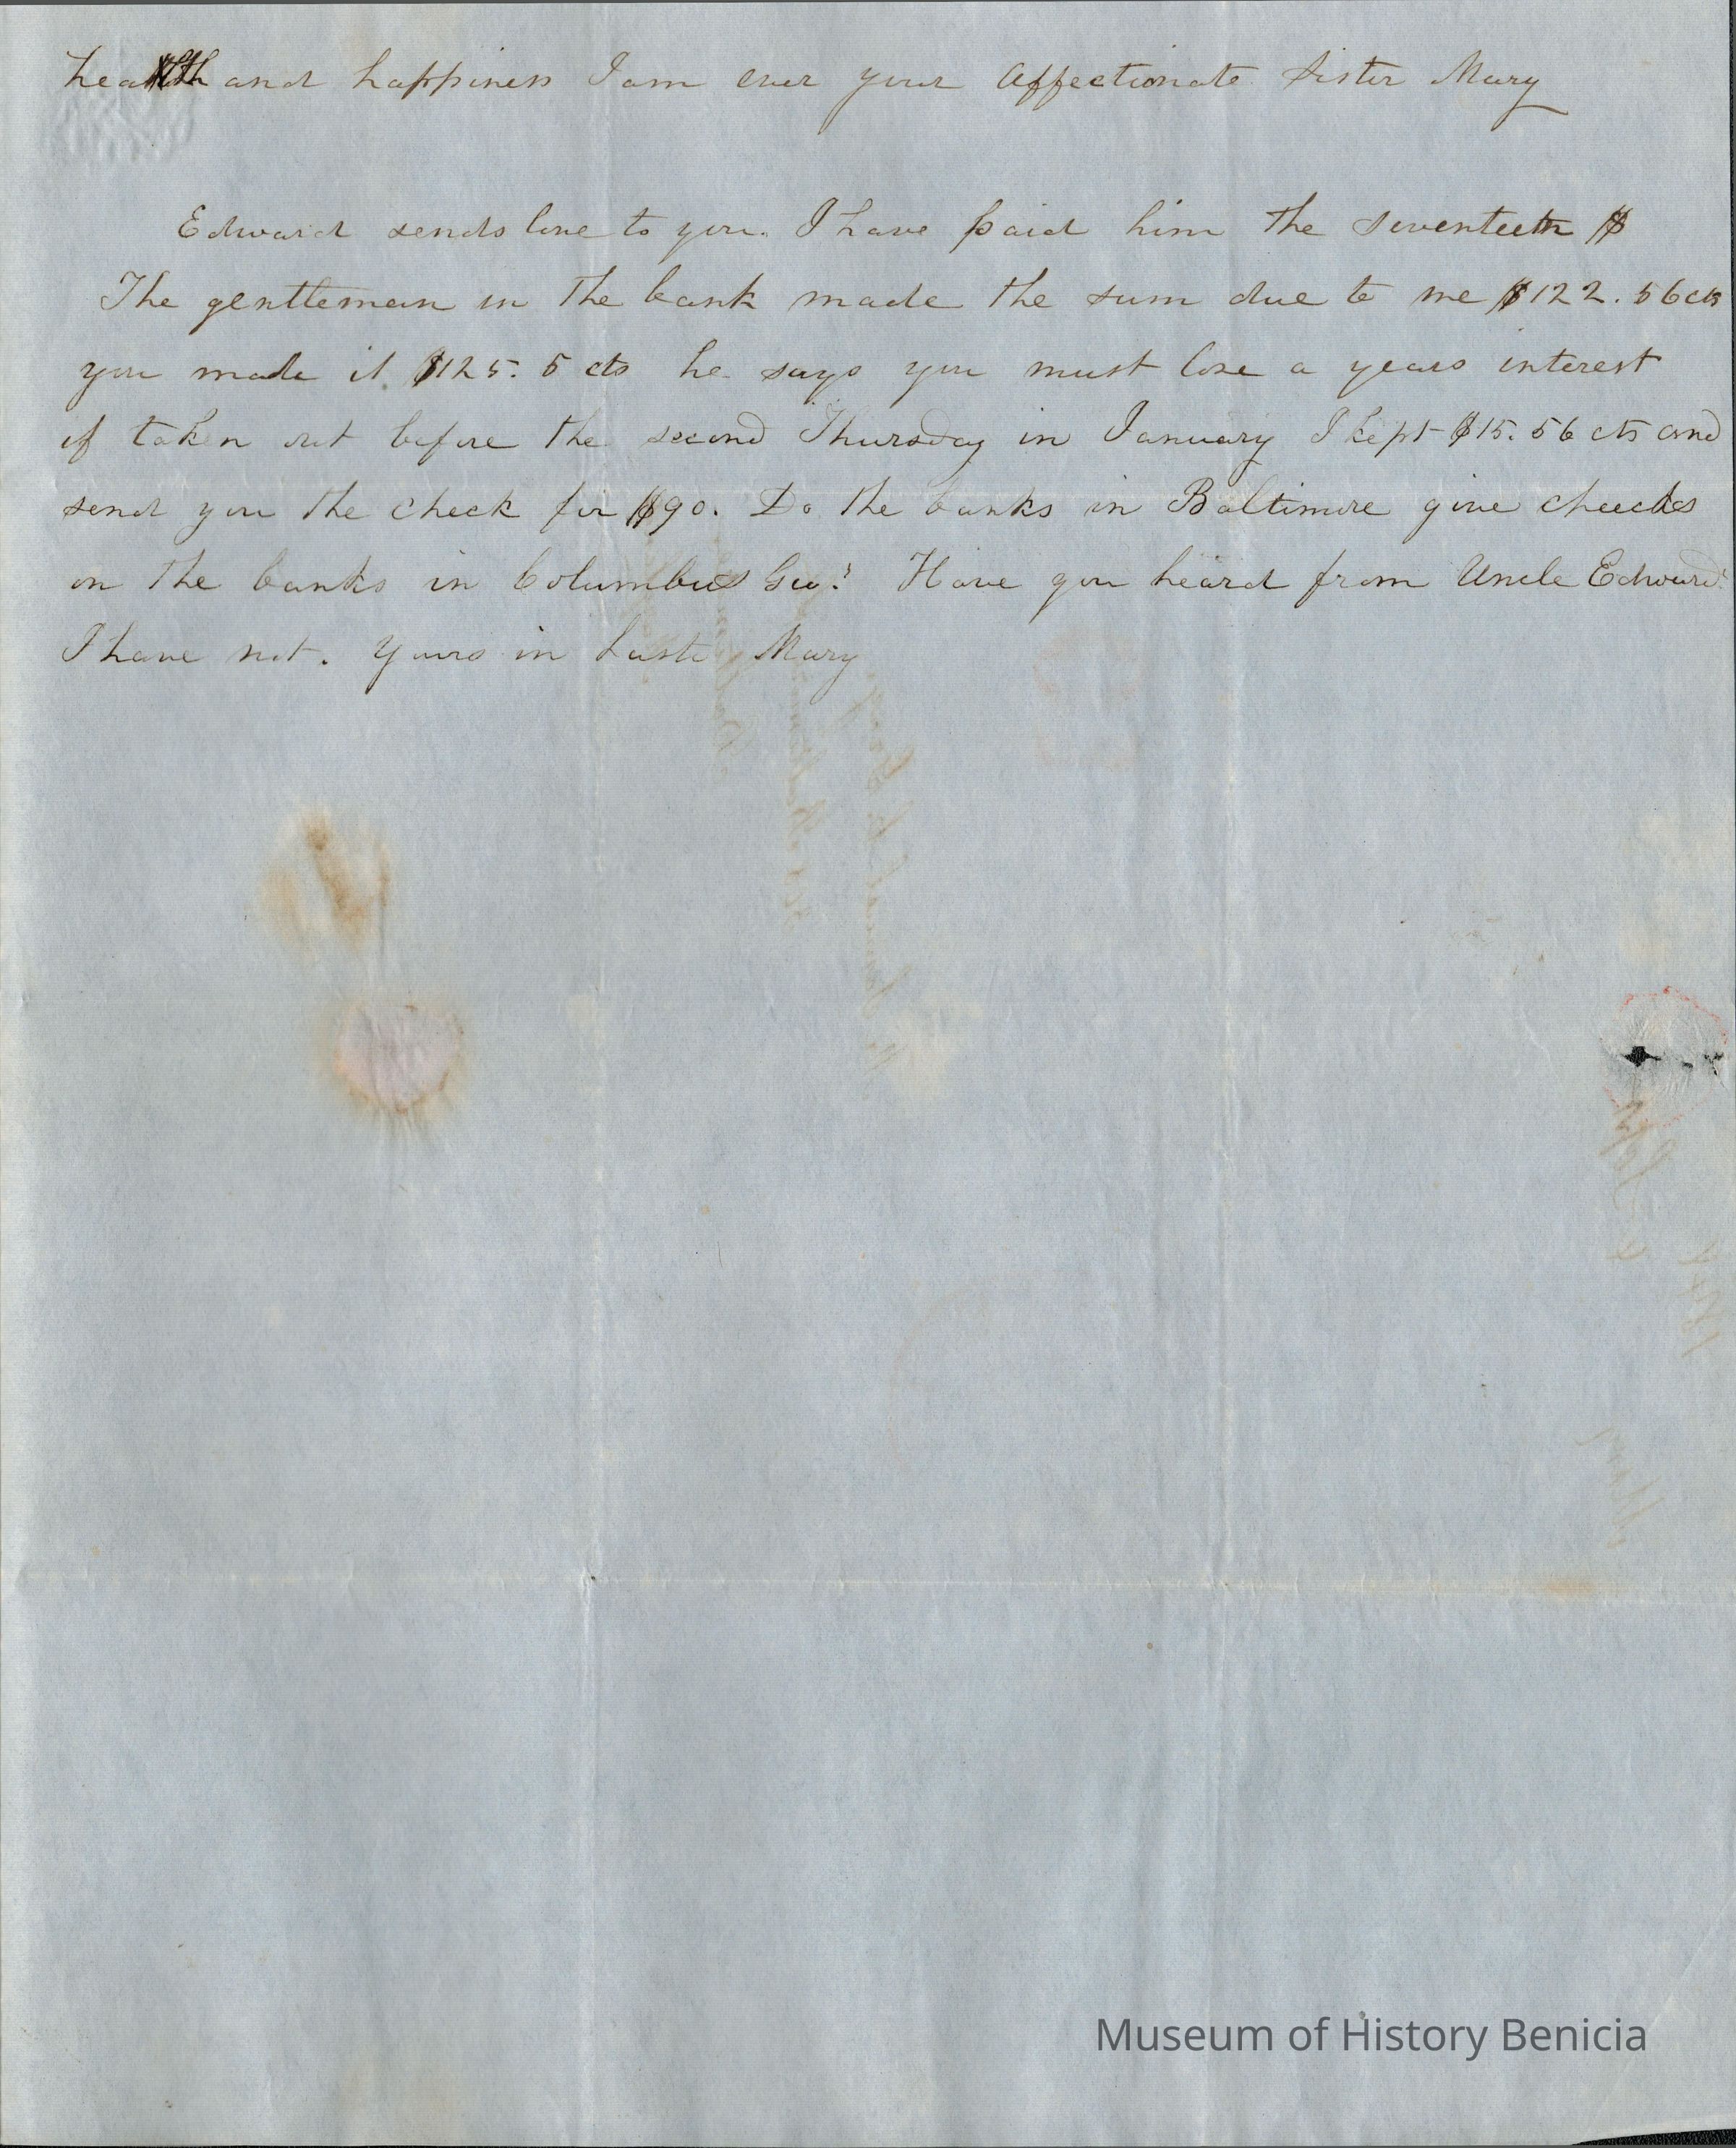 health and happiness I am ever your affectionate Sister Mary
Edward sends love to you. I have paid him the seventeen $
The gentleman in the bank made the sum due to me $122.56 cts
you made it $125.5 cts he says you must lose a years interest
if taken out before the second Thursday in January I kept $15.56 cts and
send you the check for $90. Do the banks in Baltimore give checks
on the banks in Columbus Geo? Have you heard from Uncle Edward?
I have not. Yours in haste Mary
Museum of History Benicia